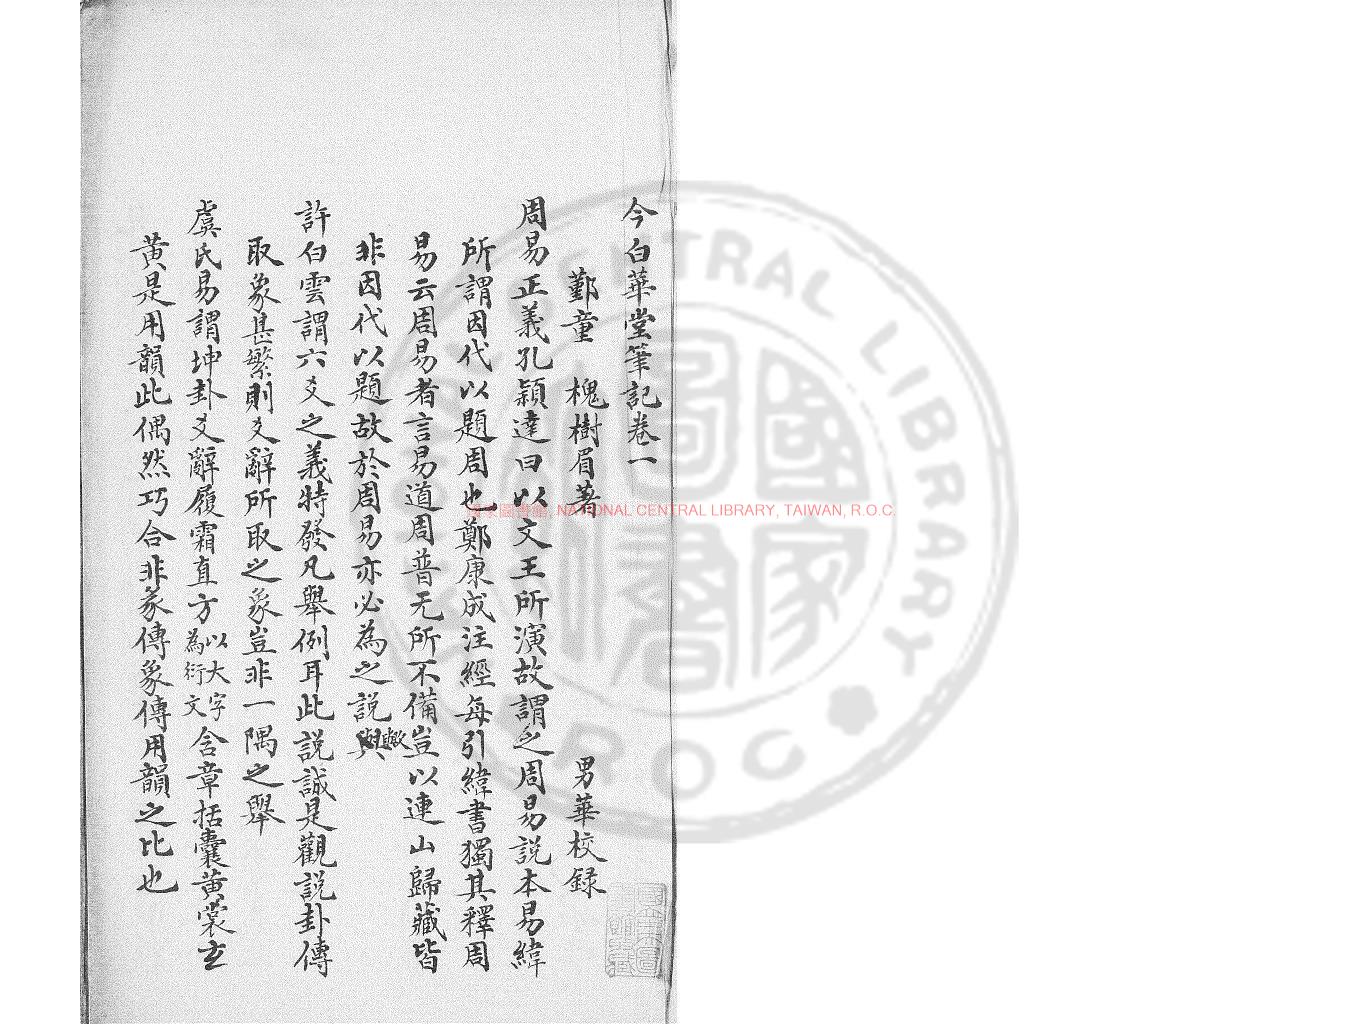 今白華堂筆記卷一
鄞童　槐樹眉著　男華校録
周易正義孔穎達曰以文王所演故謂之周易說本易緯
所謂因代以題周也鄭康成注經每引緯書獨其釋周
易云周易者言易道周普无所不備豈以連山歸藏皆
非因代以題故於周易亦必為之説與歟
許白雲謂六爻之義特發凡舉例耳此説誠是觀説卦傳
取象甚繁則爻辭所取之象豈非一隅之舉
虞氏易謂坤卦爻辭履霜直方以大字為衍文含章括囊黄裳玄
黄是用韻此偶然巧合非彖傳象傳用韻之比也
國家圖書館, NATIONAL CENTRAL LIBRARY, TAIWAN, R.O.C.
NATIONAL CENTRAL LIBRARY
R O C
國家圖書